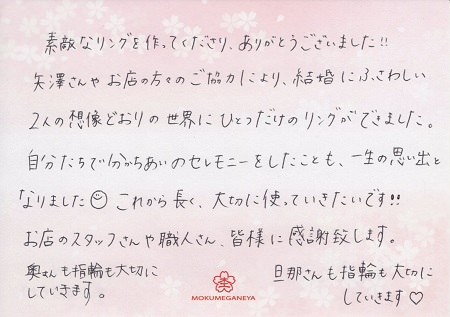 素敵なリングを作ってくださり、ありがとうございました!!
矢澤さんやお店の方々のご協力により、結婚にふさわしい
2人の想像どおりの世界にひとつだけのリングができました。
自分たちで分かちあいのセレモニーをしたことも、一生の思い出と
なりました☺ これから長く、大切に使っていきたいです!!
お店のスタッフさんや職人さん、皆様に感謝致します。
奥さんも指輪も大切に
していきます。
旦那さんも指輪も大切に
していきます♡
MOKUMEGANEYA